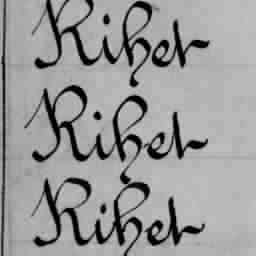 Rihet
Rihet
Rihet